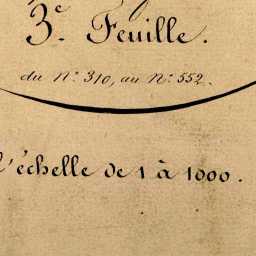 3e. Feuille.
du N.° 310, au N.° 552.
l'échelle de 1 à 1000.